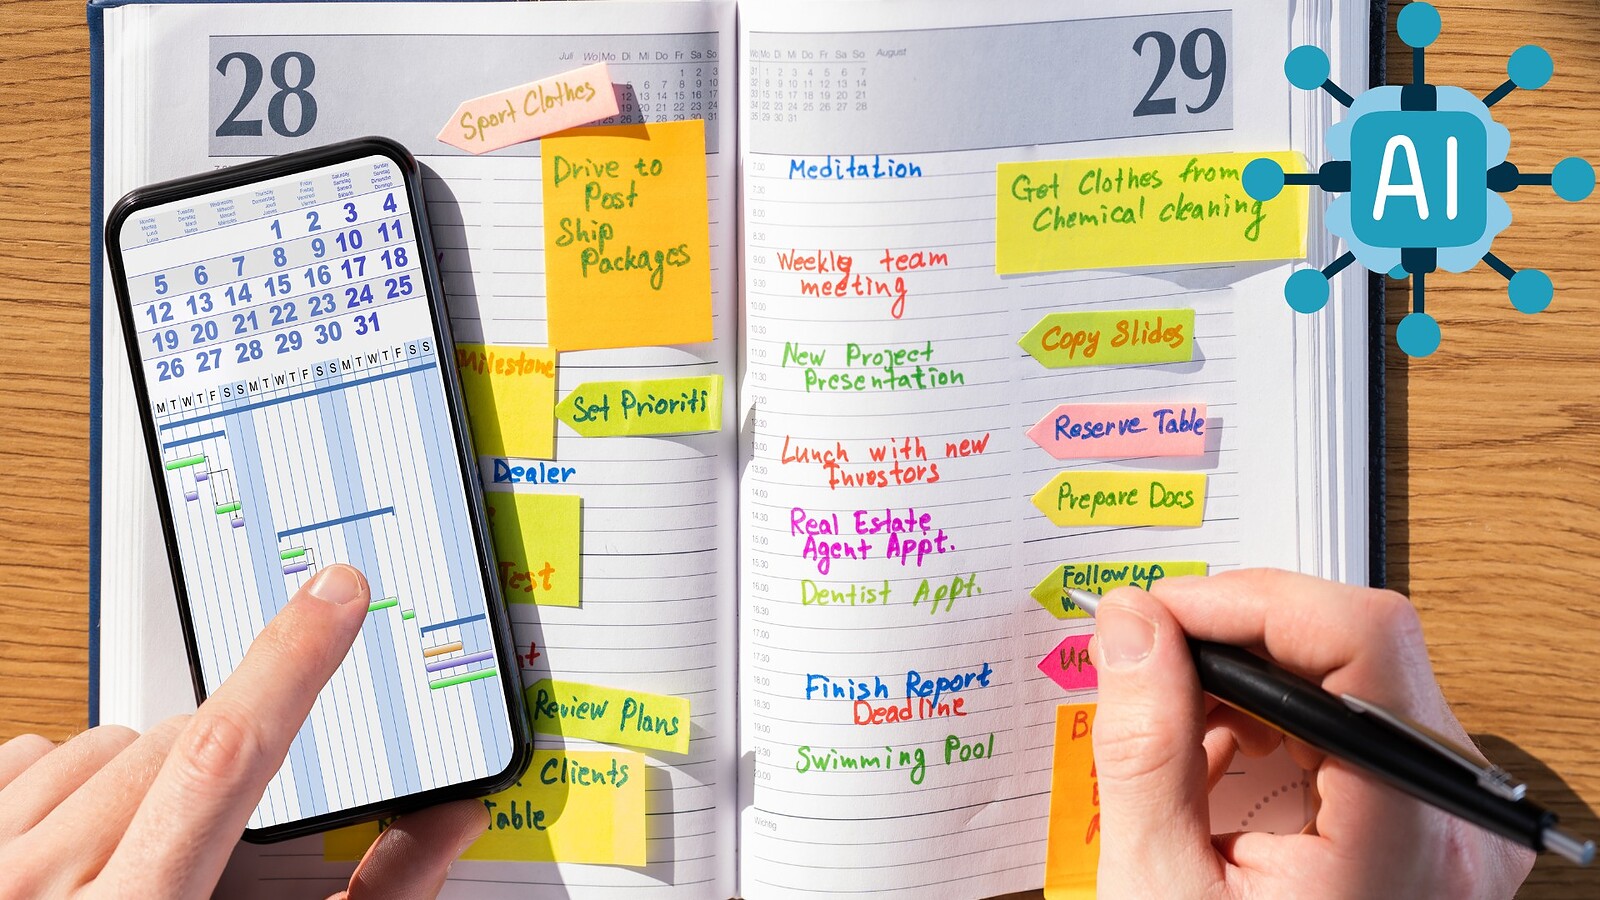 28
Juli
Wo Mo Di Mi Do Fr Sa So
Sport Clothes
Drive to
Post
Ship
Packages
1 2 3 4
5 6 7 8 9 10 11
12 13 14 15 16 17 18
19 20 21 22 23 24 25
26 27 28 29 30 31
M T W T F S S M T W T F S S M T W T F S S
Milestone
Set Prioriti
Dealer
Test
Review Plans
Clients
Table
29
Mo Di Mi Do Fr Sa So
August
Meditation
Weekly team
meeting
New Project
Presentation
Lunch with new
Investors
Real Estate
Agent Appt.
Dentist Appt.
Finish Report
Deadline
Swimming Pool
Wichtig
Get Clothes from
Chemical cleaning
Copy Slides
Reserve Table
Prepare Docs
Follow up
AI